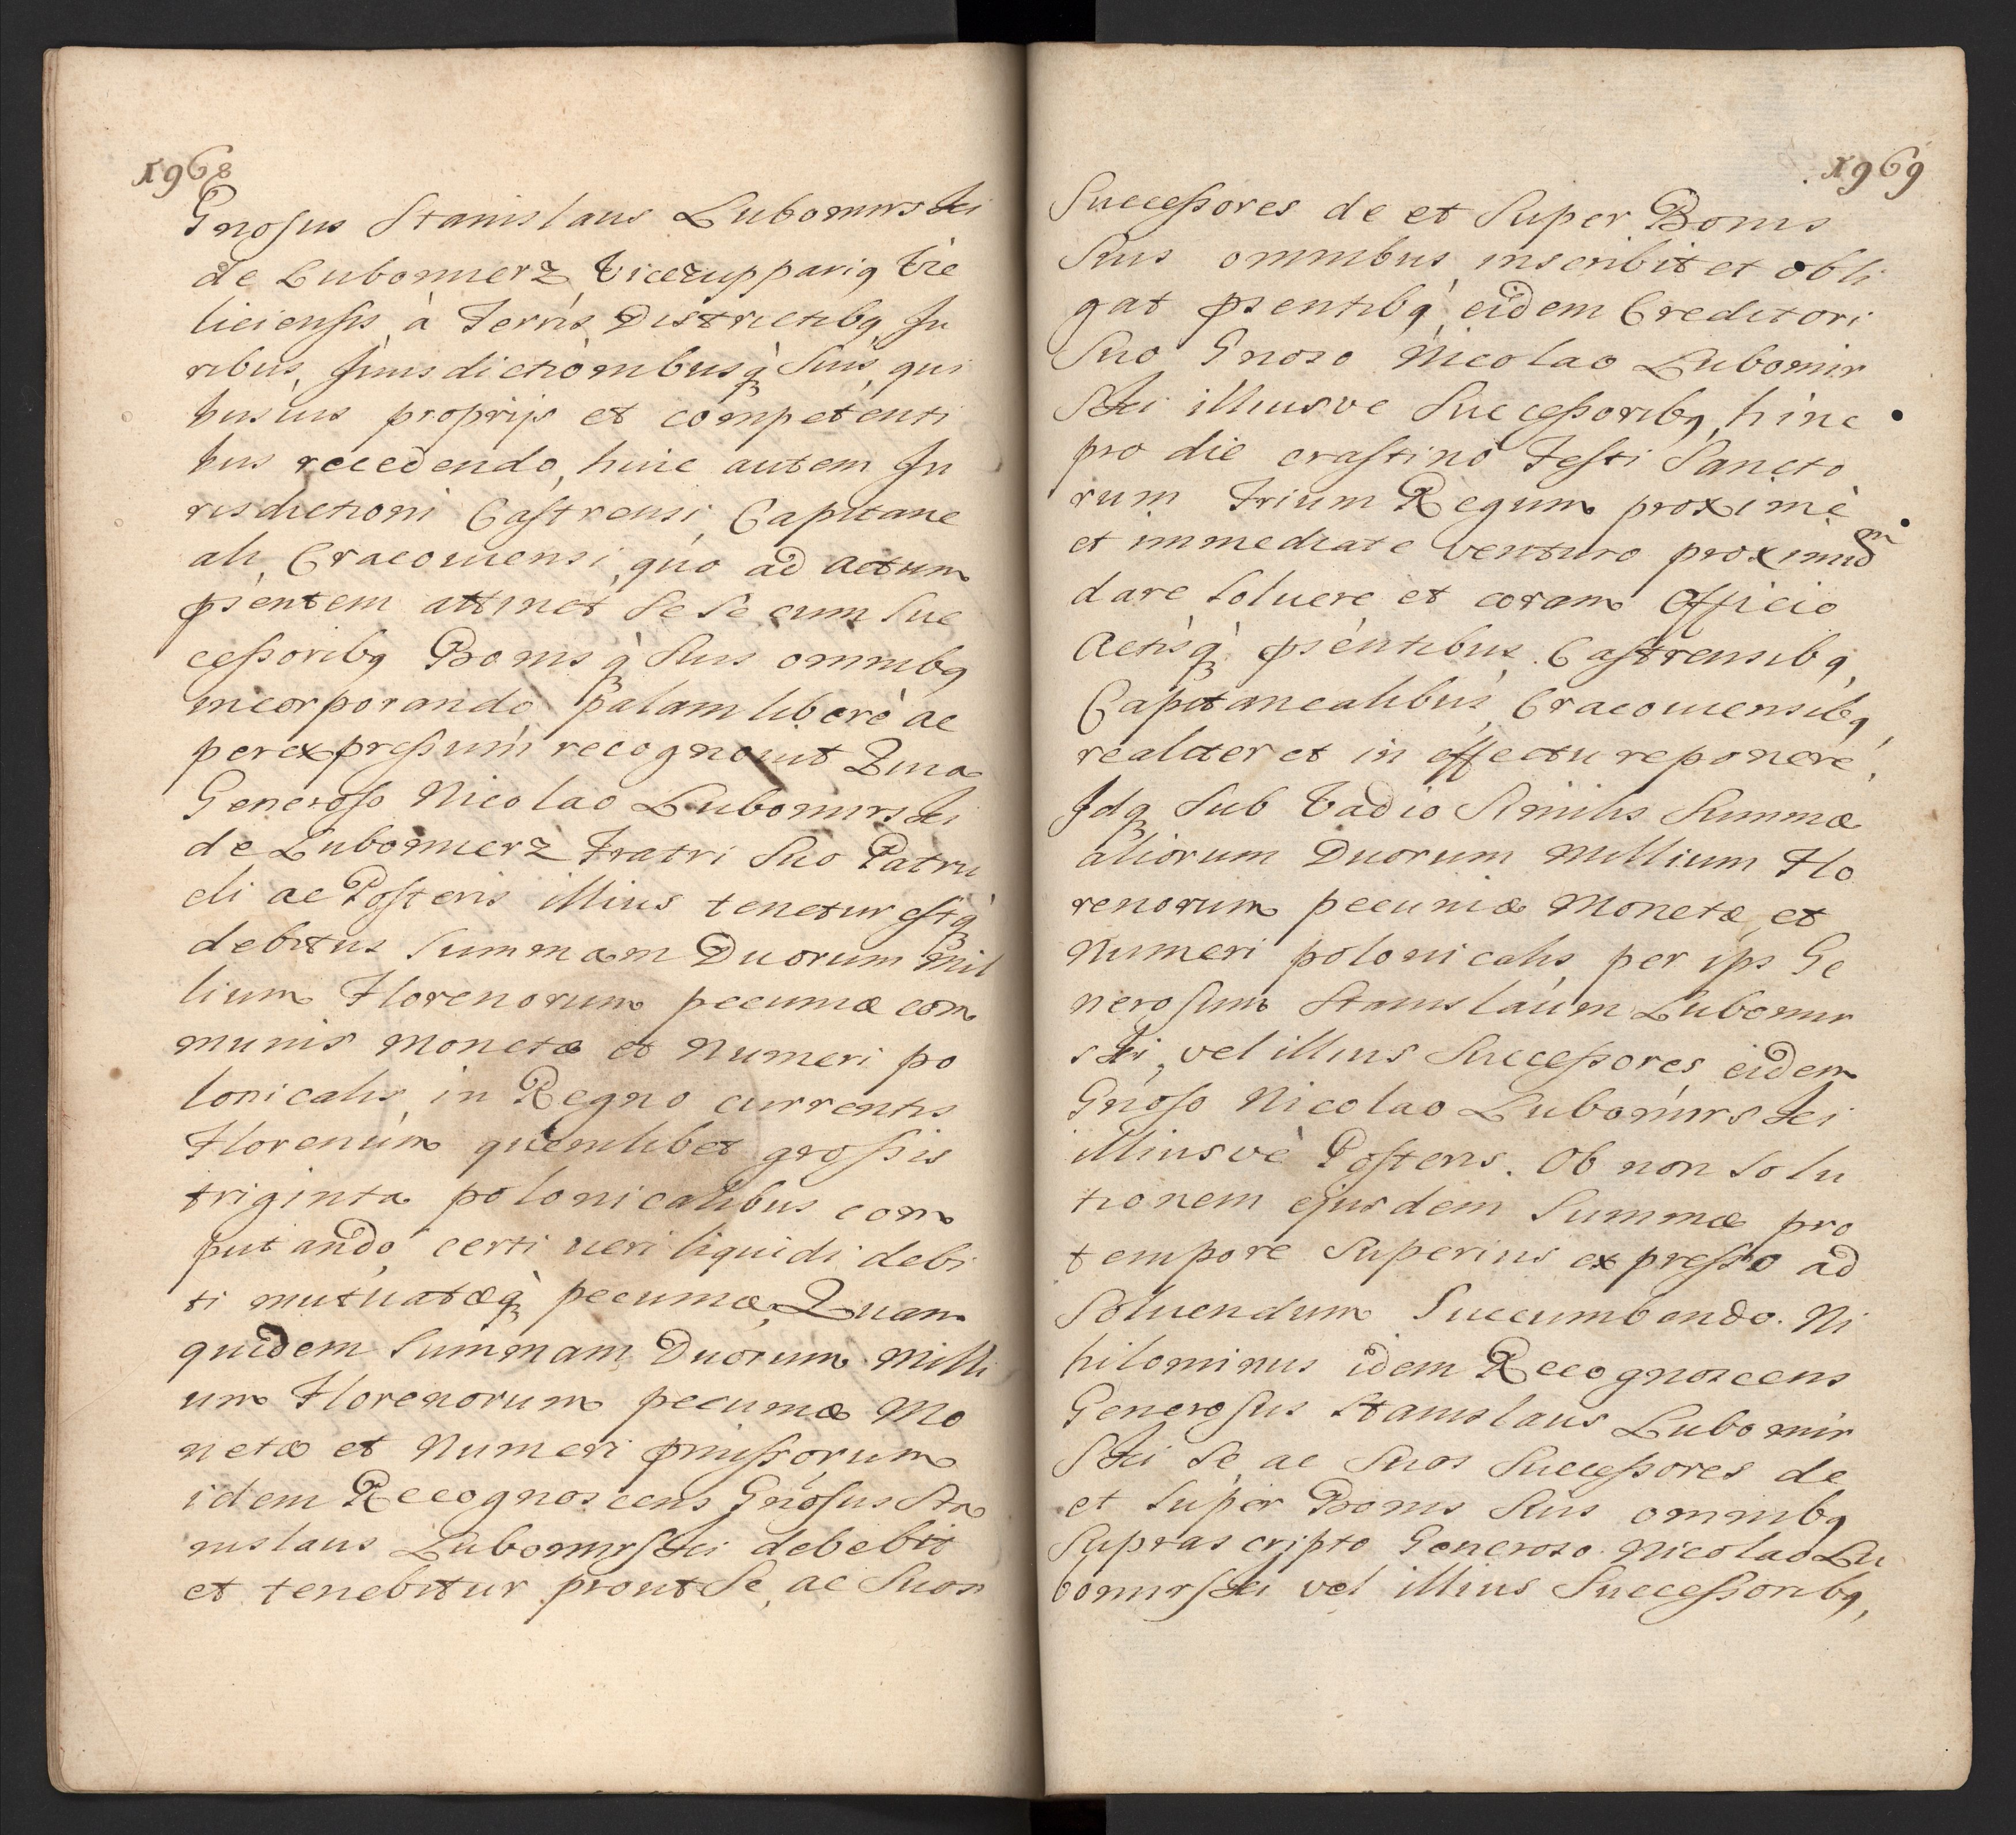 1968
Gnosus Stanislaus Lubomirski
de Lubomierz Vicezupparig Vie
liciensis à Terris Districtibq Ju
ribus, Jurisdictionibusq̀ Suis, qui
busuis proprijs et competenti
bus recedendo, huic autem Ju
risdictioni Castrensi Capitane
ali, Cracouiensi, quo ad Actum
pntem attinet Se Se cum Suc
cessoribq Bonisq̀ Suis omnibq
incorporando, palam liberè ac
per expressum recognouit Quia
Generoso Nicolao Lubomirski
de Lubomierz Fratri Suo Patru
eli ac Posteris illius tenetur estq̀
debitus Summam Duorum Mil
lium Florenorum pecuniæ com
munis Monetæ et Numeri po
lonicalis in Regno currentis
Florenum quemlibet grossis
triginta polonicalibus com
putando, certi ueri liquidi debi
ti mutuatæq̀ pecuniæ, Quam
quidem Summam Duorum Milli
um Florenorum pecuniæ Mo
netæ et Numeri pmissorum
idem Recognoscens Gnosus Sta
nislaus Lubomirski debebit
et tenebitur prout Se, ac Suos
1969
Successores de et Super Bonis
Suis omnibus inscribit et obli
gat psentibq, eidem Creditori
Suo Gnoso Nicolao Lubomir
Ski illiusve Successoribq, hinc
pro die crastino Festi Sancto
rum Trium Regum proximè
et immediate venturo proximid
dare soluere et coram Officio
Actisq̀ psentibus Castrensibq
Capitanealibus Cracouiensibq,
realiter et in effectu reponere,
Jdq Sub Vadio Similis Summæ
aliorum Duorum Millium Flo
renorum pecuniæ Monetæ et
Numeri polonicalis per ips Ge
nerosum Stanislaum Lubomir
ski, vel illius Successores eidem
Gnoso Nicolao Lubomirski
illiusvè Posteris. Ob non Solu
tionem ejusdem Summæ pro
tempore Superius expresso ad
Soluendum Succumbendo. Ni
hilominus idem Recognoscens
Generosus Stanislaus Lubomir
Ski Se, ac Suos Successores de
et Super Bonis Suis omnibq
Suprascripto Generoso Nicolao Lu
bomirski vel illius Successoribq,